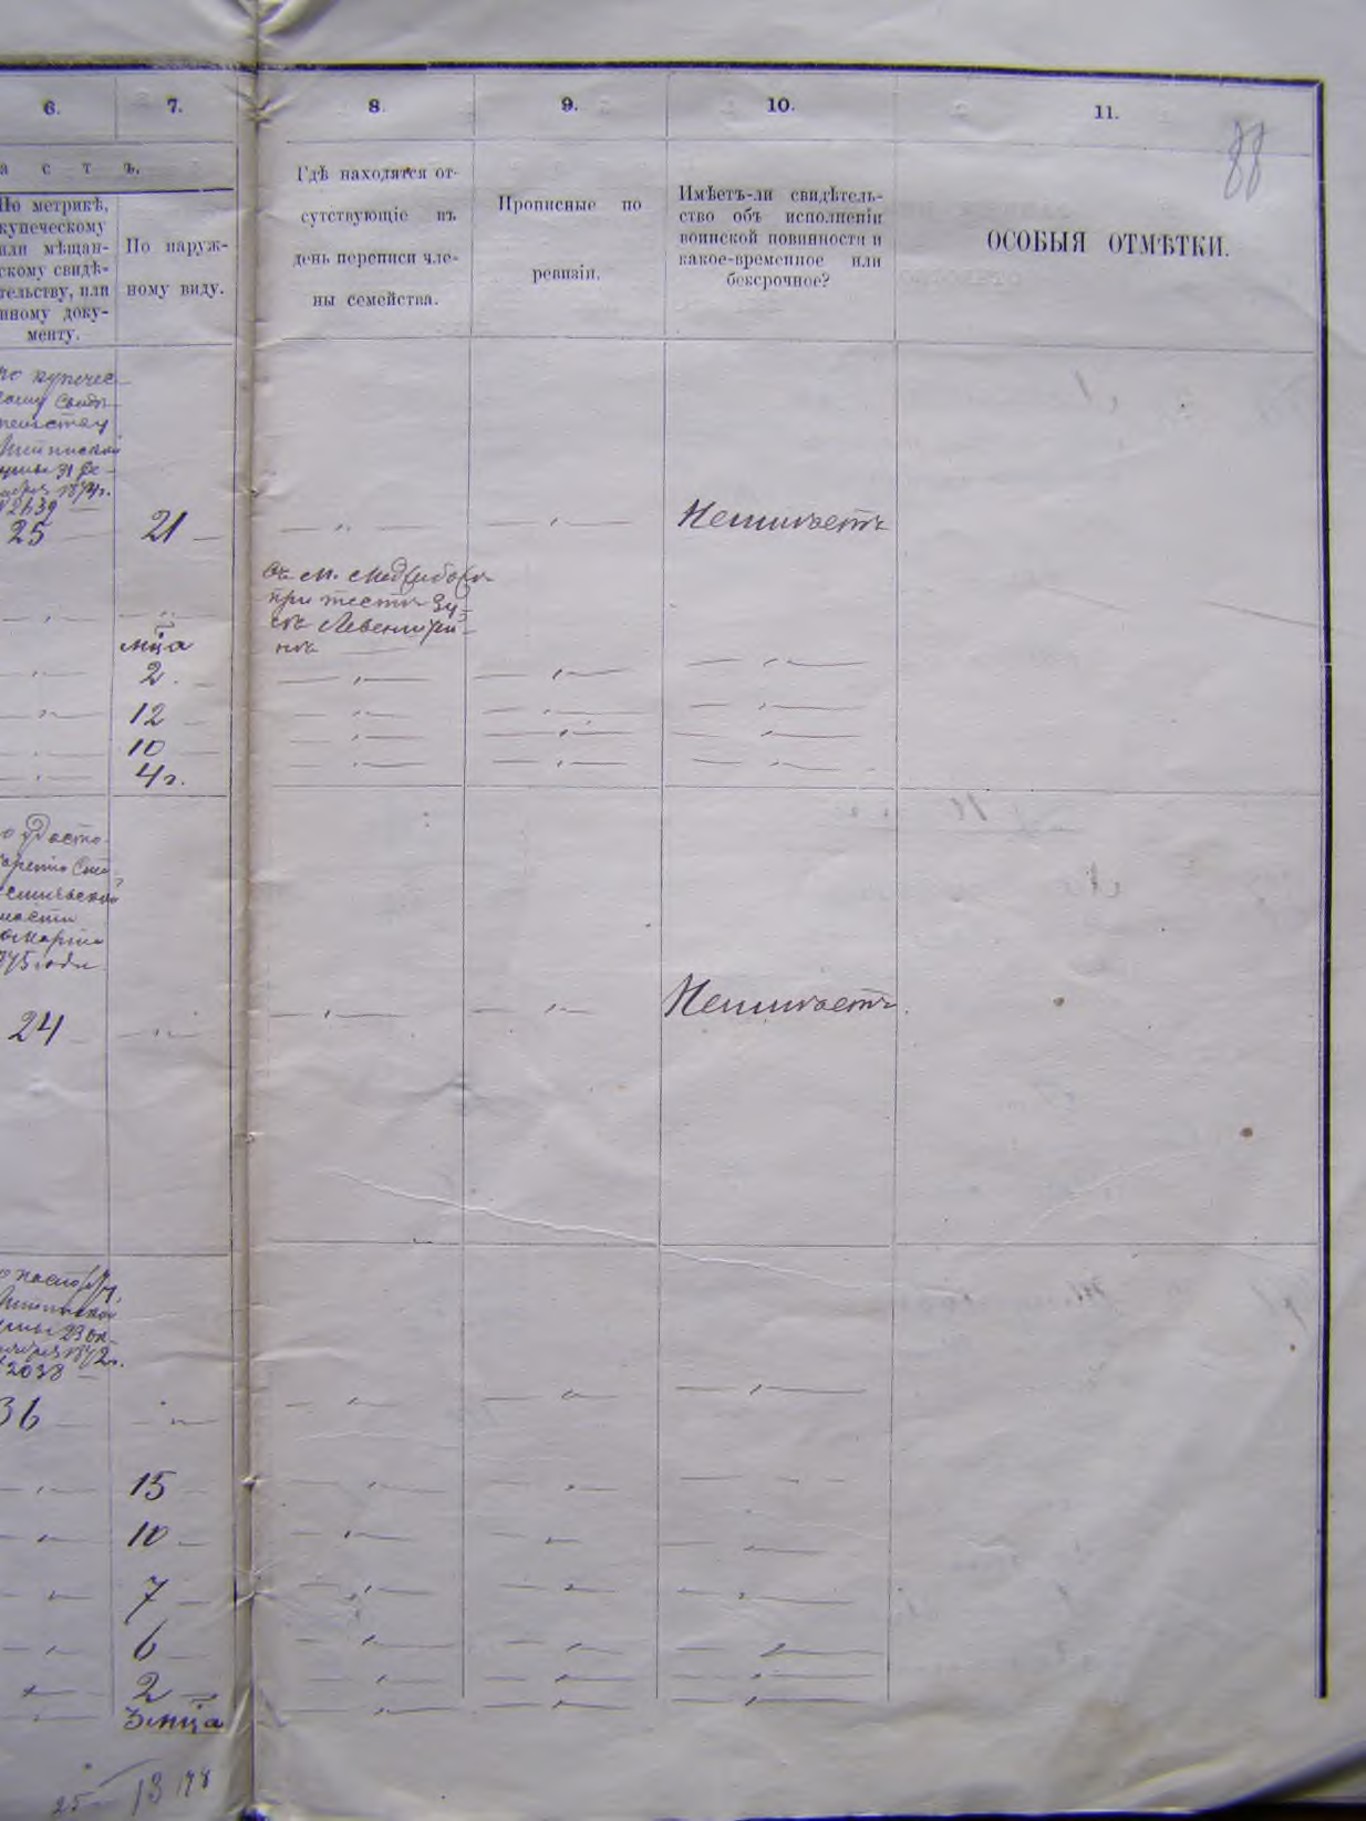 6.
7.
8.
9.
10.
11.
88
а с т ъ.
По метрикѣ,
купеческому
или мѣщан-
скому свидѣ-
тельству, или
иному доку-
менту.
По наруж-
ному виду.
Гдѣ находятся от-
сутствующіе въ
день переписи чле-
ны семейства.
Прописные по
ревизіи.
Имѣетъ-ли свидѣтель-
ство объ исполненіи
воинской повинности и
какое-временное или
безсрочное?
ОСОБЫЯ ОТМѢТКИ.
по купечес-
кому свидѣ-
тельству
31 Де-
кабря 1874 г.
№ 2639
25
21
Неимѣетъ
въ м. Меджибожѣ
при тестѣ
мца
2
12
10
4 г.
марта
1875 года
24
Неимѣетъ
по паспорту
23 ок-
тября 1872 г.
№ 2038
36
15
10
7
6
2
3 мца
25 13 198